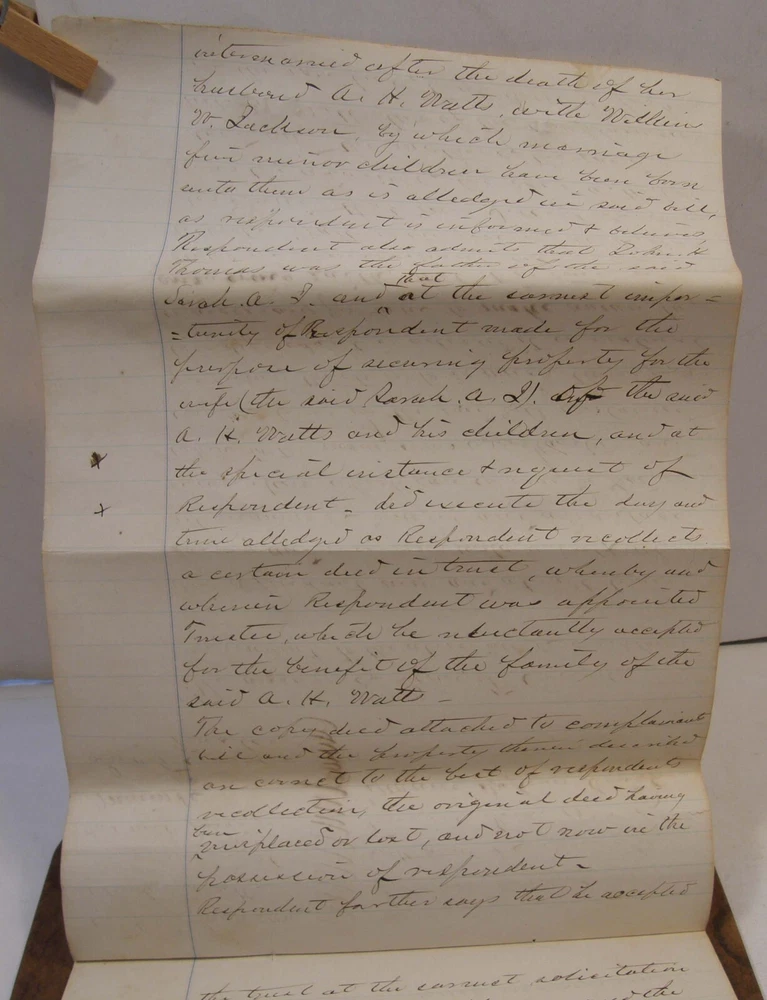 intermarried after the death of her
husband A. H. Watts, with William
W. Jackson, by which marriage
four minor children have been born
unto them as is alledged in said bill,
as respondent is informed & believes,
Respondent also admits that John H
Thomas was the father of the said
Sarah. A. J. and that at the earnest impor=
=tunity of Respondent made for the
purpose of securing property for the
wife (the said Sarah. A. J). of the said
A. H. Watts and his children, and at
the special instance & request of
Respondent - did execute the day and
time alledged as Respondent recollects
a certain deed in trust, whereby and
wherein Respondent was appointed
Trustee, which he reluctantly accepted
for the benefit of the family of the
said A. H. Watts -
The copy deed attached to complainant
bill and the property therein described
are correct to the best of respondents
recollection, the original deed having
been misplaced or lost, and not now in the
possession of respondent -
Respondent further says that he accepted
the trust at the earnest solicitation
the